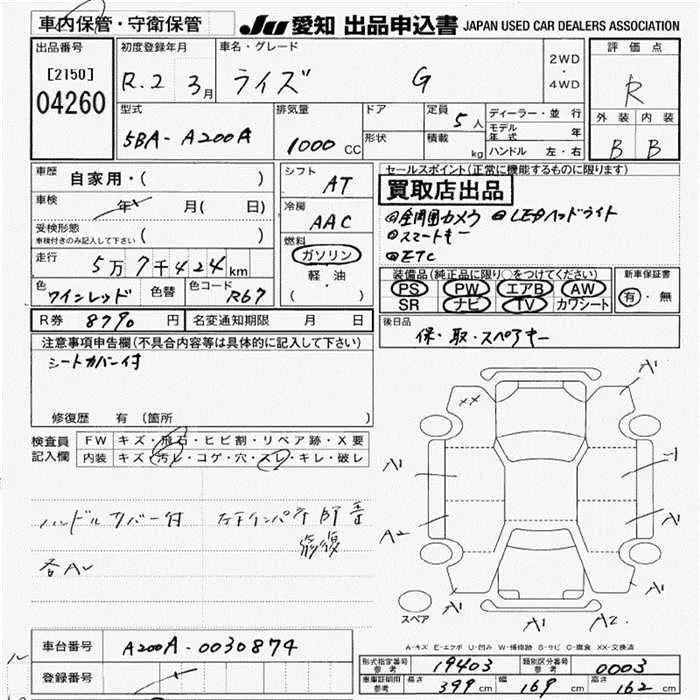 車内保管・守衛保管 JU 愛知 出品申込書 JAPAN USED CAR DEALERS ASSOCIATION
出品番号 初度登録年月 車名・グレード 2WD・4WD 評価点
[2150] 04260 R.2 3月 ライズ G R
型式 排気量 ドア 定員 5人 ディーラー・並行 外装 内装
5BA-A200A 1000CC 形状 積載 kg モデル年式 年 B B
ハンドル 左・右
車歴 自家用・( ) シフト AT セールスポイント(正常に機能するものに限ります)
買取店出品
車検 年 月( 日) 冷房 AAC 全周囲カメラ LEDヘッドライト
受検形態 車検付きのみ記入して下さい ( ) スマートキー
燃料 ガソリン 軽油 ( ) ETC
走行 5万7千424km 装備品(純正品に限り○をつけてください) 新車保証書
PS PW エアB AW 有・無
色 ワインレッド 色替 色コード R67 SR ナビ TV カワシート
R券 8790円 名変通知期限 月 日 後日品
保・取・スペアキー
注意事項申告欄(不具合内容等は具体的に記入して下さい)
シートカバー付
修復歴 有 (箇所
検査員記入欄 FW キズ・飛石・ヒビ割・リペア跡・X要
内装 キズ・汚レ・コゲ・穴・スレ・キレ・破レ
ハンドルカバー付
修復
各AL
XX
A1
A1
A1
A2
A1
A1
A1
A1
A2
スペア
A-キズ E-エクボ U-凹み W-補修跡 S-サビ C-腐食 XX-交換済
車台番号 A200A-0030874
型式指定番号 参考 19403 類別区分番号 参考 0003
登録番号
車庫証明用 参考 長さ 399cm 幅 169cm 高さ 162cm